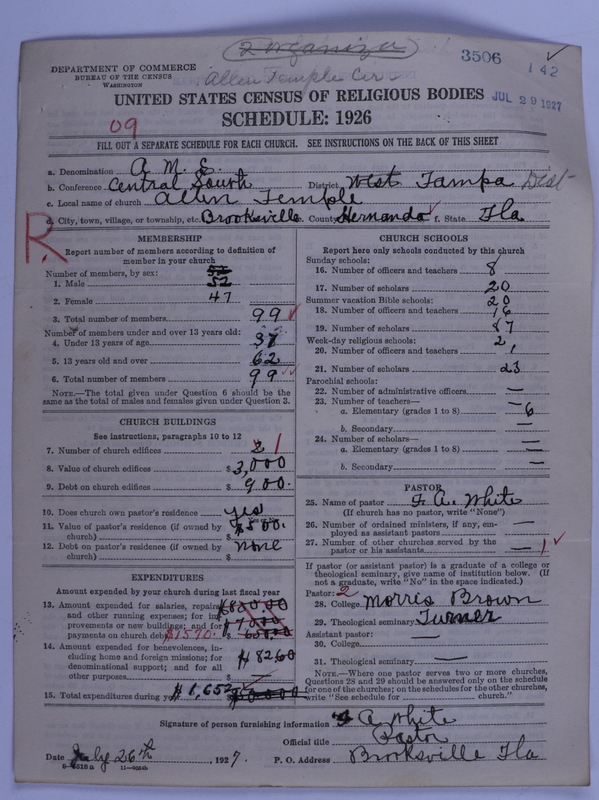 2 organizer
3506
142
DEPARTMENT OF COMMERCE
BUREAU OF THE CENSUS
WASHINGTON
Allen Temple
JUL 29 1927
UNITED STATES CENSUS OF RELIGIOUS BODIES
SCHEDULE: 1926
09
FILL OUT A SEPARATE SCHEDULE FOR EACH CHURCH. SEE INSTRUCTIONS ON THE BACK OF THIS SHEET
a. Denomination A. M. E.
b. Conference Central South District West Tampa Dist
c. Local name of church Allin Temple
d. City, town, village, or township, etc. Brooksville e. County Hernando f. State Fla
R.
MEMBERSHIP
Report number of members according to definition of
member in your church
Number of members, by sex:
1. Male 52
2. Female 47
3. Total number of members 99
Number of members under and over 13 years old:
4. Under 13 years of age 37
5. 13 years old and over 62
6. Total number of members 99
NOTE.—The total given under Question 6 should be the
same as the total of males and females given under Question 3.
CHURCH BUILDINGS
See instructions, paragraphs 10 to 12
7. Number of church edifices 2 1
8. Value of church edifices $3,000
9. Debt on church edifices $900.
10. Does church own pastor's residence yes
11. Value of pastor's residence (if owned by
church) $500.
12. Debt on pastor's residence (if owned by
church) none
EXPENDITURES
Amount expended by your church during last fiscal year
13. Amount expended for salaries, repairs
and other running expenses; for im-
provements or new buildings; and for
payments on church debt $1570.
14. Amount expended for benevolences, in-
cluding home and foreign missions; for
denominational support; and for all
other purposes $82.60
15. Total expenditures during year $1,652
CHURCH SCHOOLS
Report here only schools conducted by this church
Sunday schools:
16. Number of officers and teachers 8
17. Number of scholars 20
Summer vacation Bible schools: 20
18. Number of officers and teachers 16
19. Number of scholars 87
Week-day religious schools: 2
20. Number of officers and teachers 1
21. Number of scholars 23
Parochial schools:
22. Number of administrative officers —
23. Number of teachers— —
a. Elementary (grades 1 to 8) 6
b. Secondary —
24. Number of scholars—
a. Elementary (grades 1 to 8) —
b. Secondary —
PASTOR
25. Name of pastor F. A. White
(If church has no pastor, write "None")
26. Number of ordained ministers, if any, em-
ployed as assistant pastors —
27. Number of other churches served by the
pastor or his assistants — 1
If pastor (or assistant pastor) is a graduate of a college or
theological seminary, give name of institution below. (If
not a graduate, write "No" in the space indicated.)
Pastor: 2
28. College Morris Brown
29. Theological seminary Turner
Assistant pastor:
30. College —
31. Theological seminary —
NOTE.—Where one pastor serves two or more churches,
Questions 28 and 29 should be answered only on the schedule
for one of the churches; on the schedules for the other churches,
write "See schedule for church."
Signature of person furnishing information F A White
Official title Pastor
Date July 26th, 1927. P. O. Address Brooksville Fla